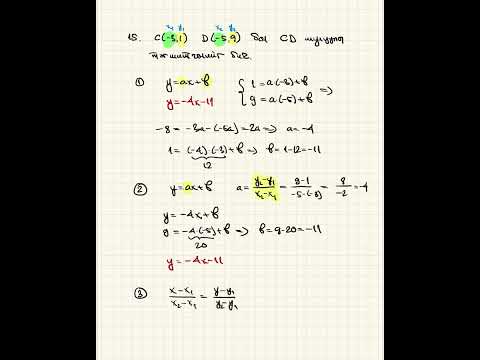 x₁ y₁ x₂ y₂
15. C(-3,1) D(-5,9) бол CD шулууны
тэгшитгэлийг бич.
① y=ax+b { 1=a(-3)+b
y=-4x-11 9=a(-5)+b ⇒
-8 = -3a-(-5a)=2a ⇒ a=-4
1=(-4)·(-3)+b ⇒ b=1-12=-11
12
② y=ax+b a= y₂-y₁/x₂-x₁ = 9-1/-5-(-3) = 8/-2 =-4
y=-4x+b
9=-4·(-5)+b ⇒ b=9-20=-11
20
y=-4x-11
③ x-x₁/x₂-x₁ = y-y₁/y₂-y₁